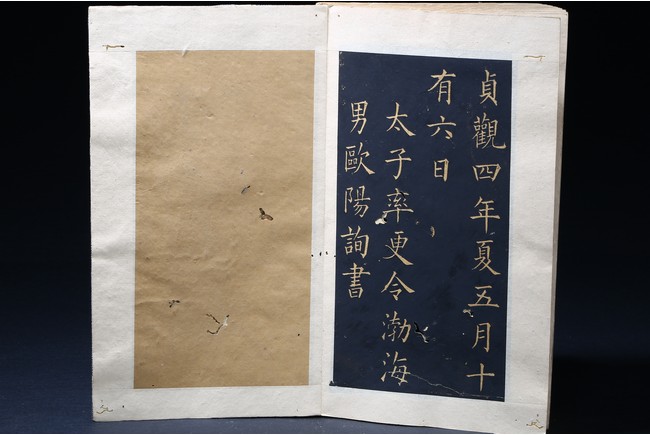 貞觀四年夏五月十
有六日
太子率更令渤海
男歐陽詢書